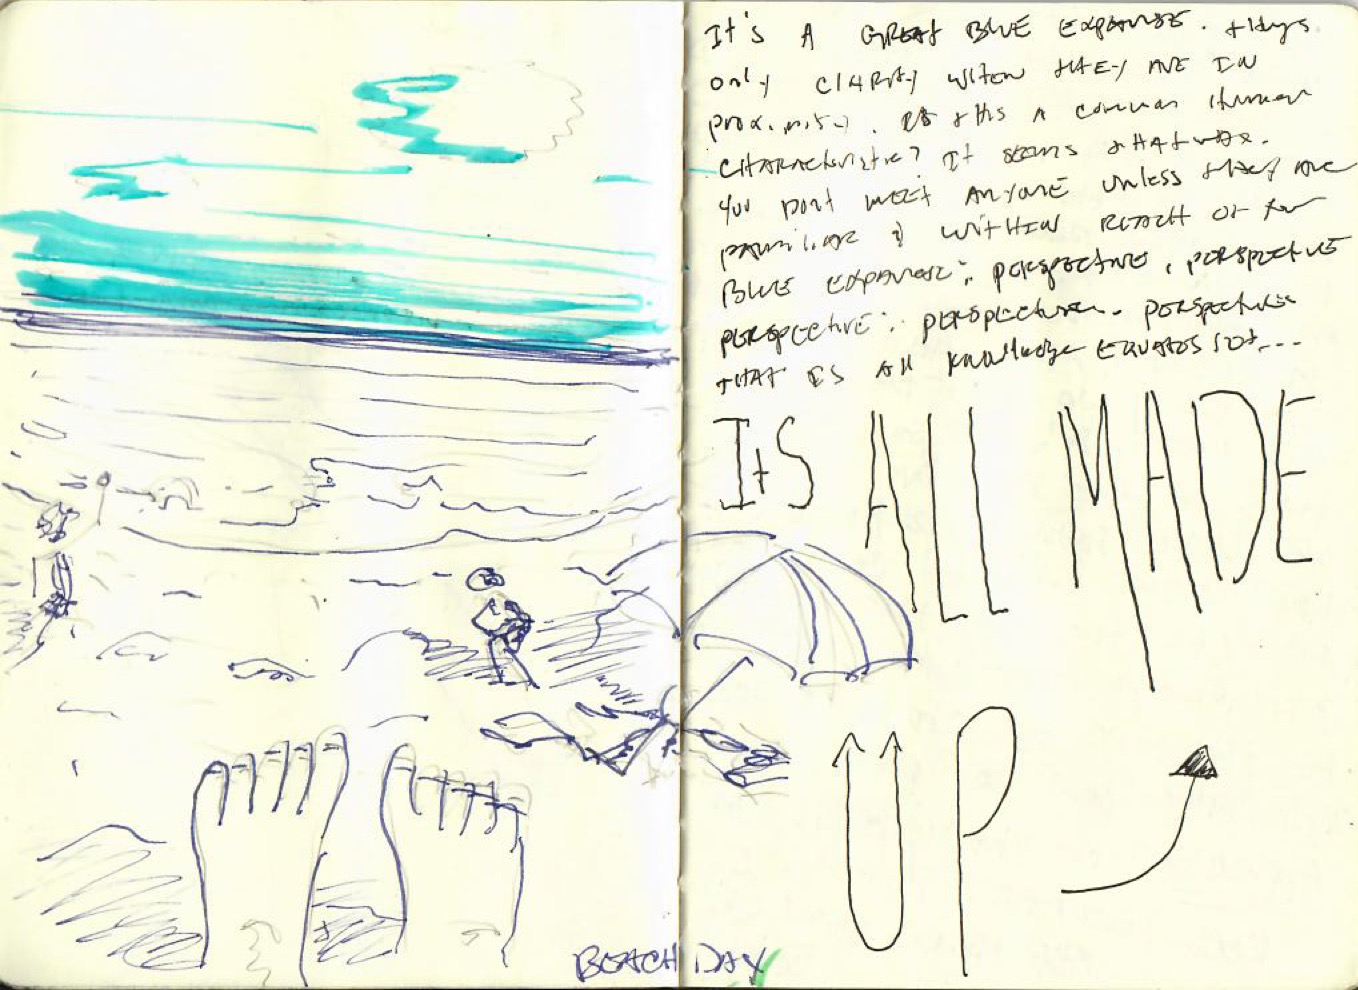 It's A GREAT BLUE EXPANSE. things
only clarify when they are in
proximity. Is this a common human
characteristic? It seems that way.
You dont meet anyone unless they are
familiar & within reach of your
Blue expanse. perspective, perspective
perspective. perspective. perspective
that is all knowledge equates to...
Its ALL MADE
UP
BEACH DAY